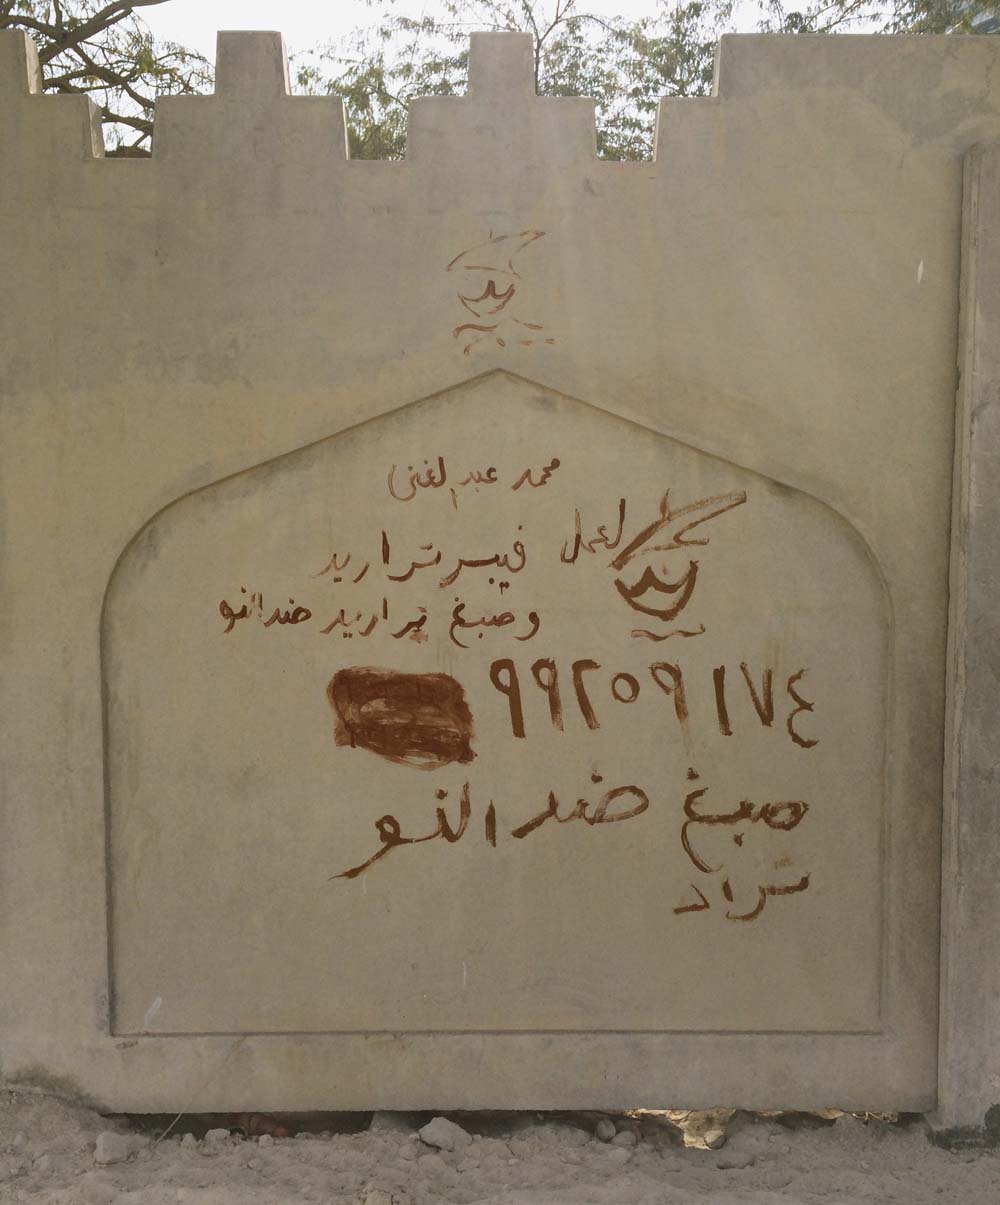 محمد عبد لغنى
لعمل فيبر تراريد
وصبغ تراريد ضد النو
٩٩٢٥٩١٧٤
صبغ ضد النو
تراد